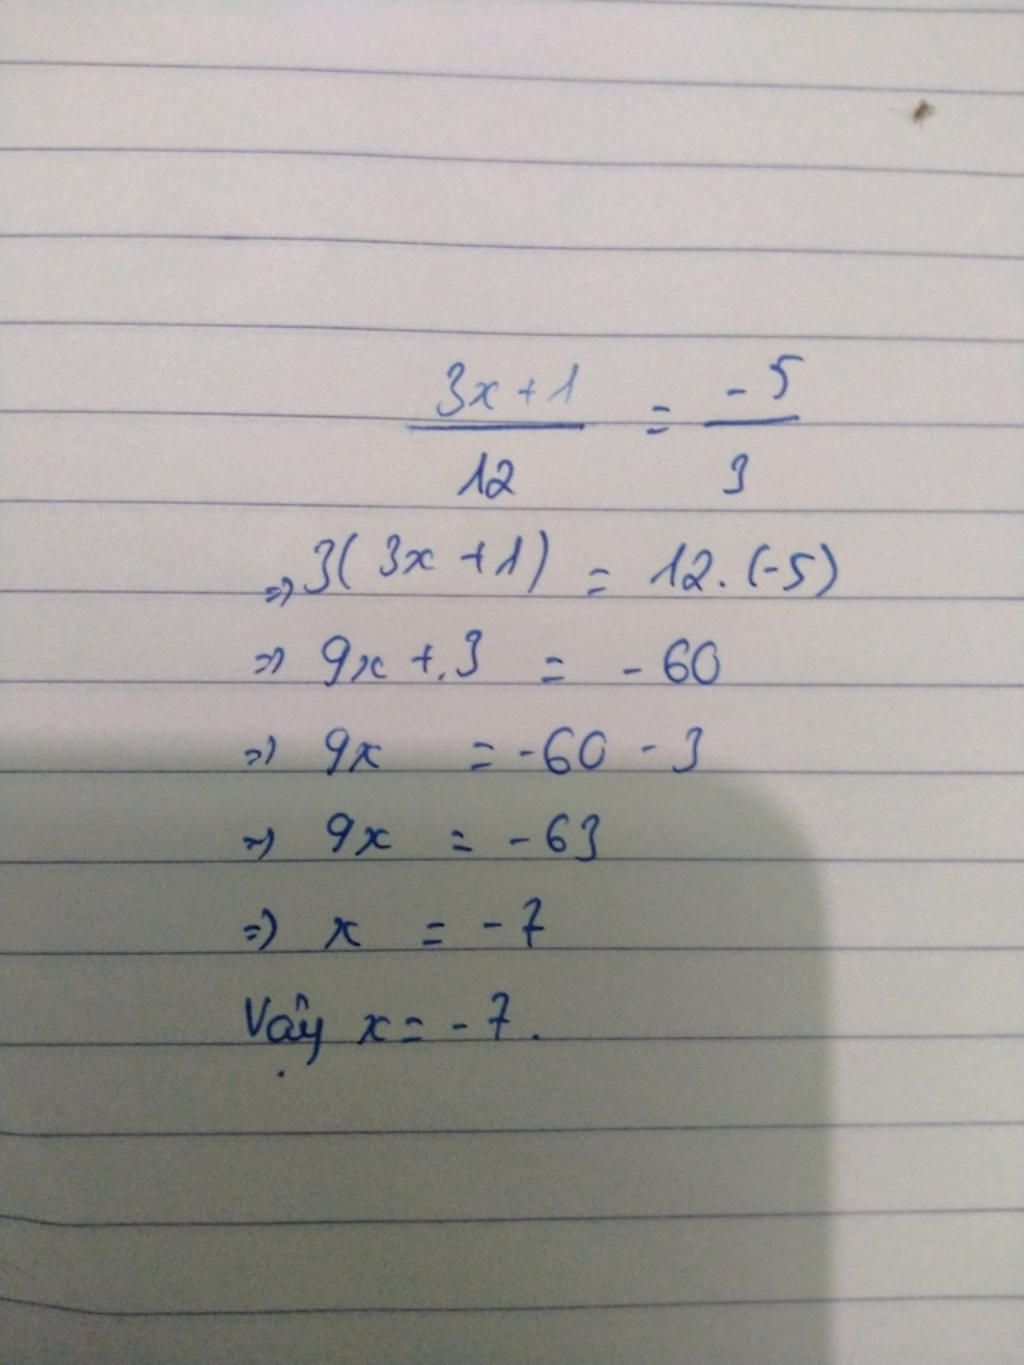 3x + 1 / 12 = -5 / 3
=> 3(3x + 1) = 12 . (-5)
=> 9x + 3 = -60
=> 9x = -60 - 3
=> 9x = -63
=> x = -7
Vậy x = -7.